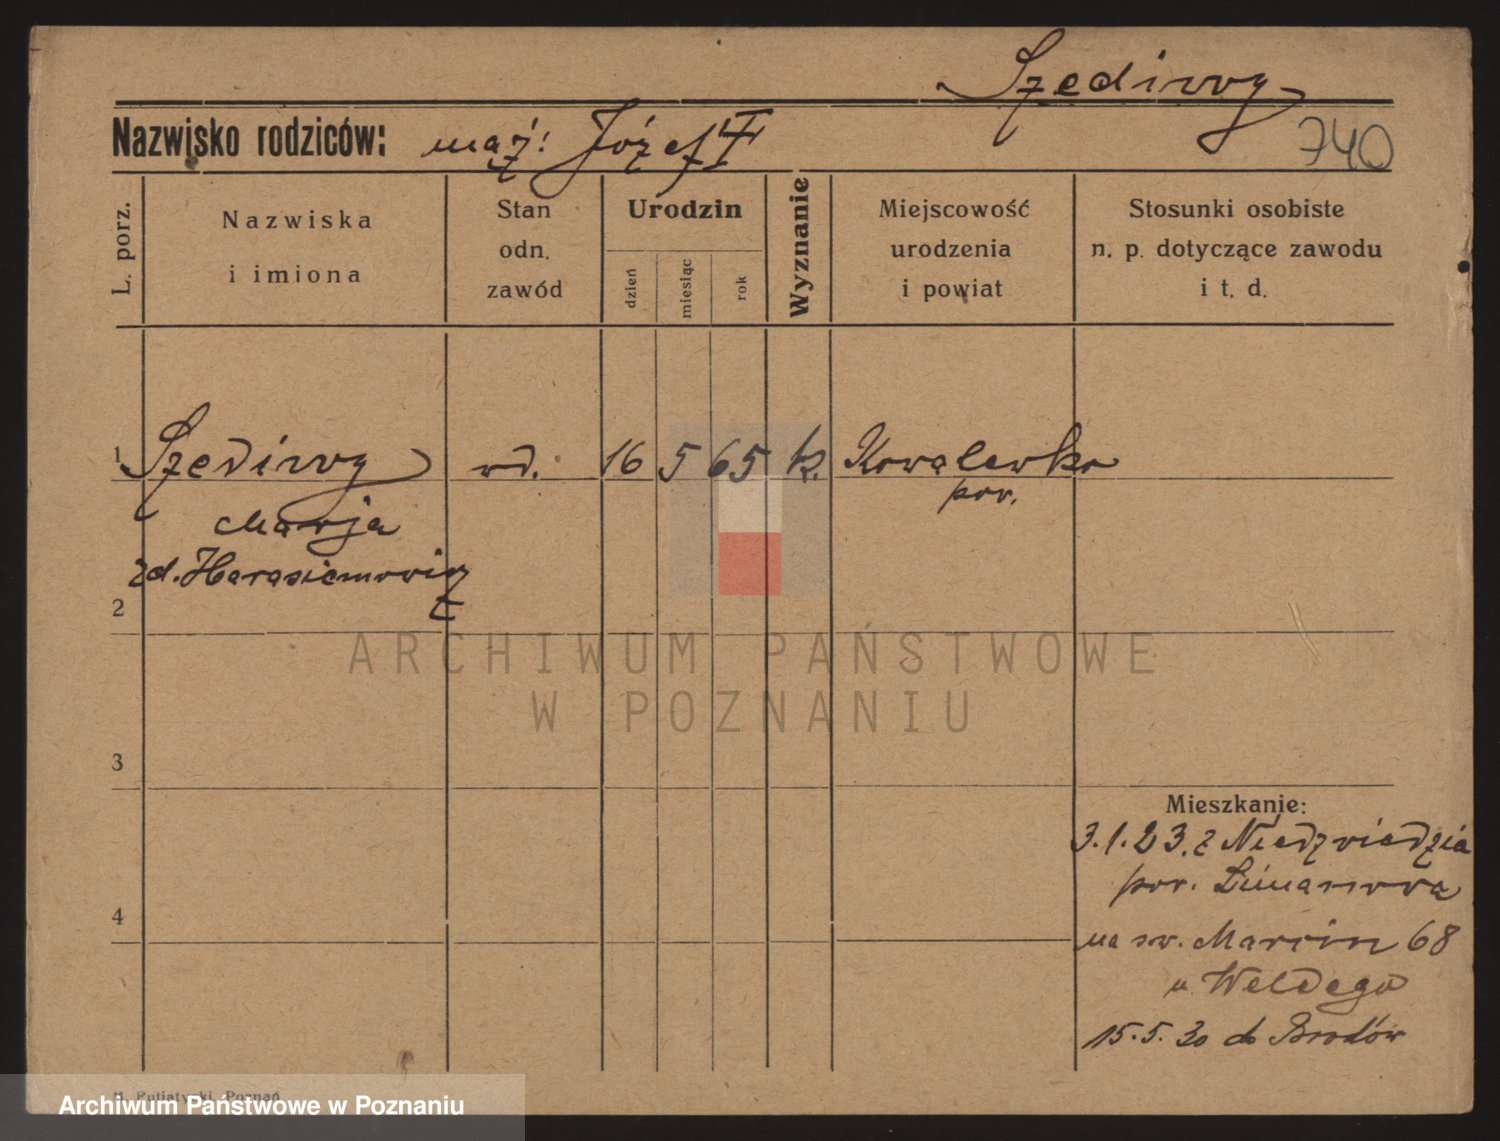 Szediwy
Nazwisko rodziców: mąż: Józef
740
L. porz.
Nazwiska
i imiona
Stan
odn.
zawód
Urodzin
dzień
miesiąc
rok
Wyznanie
Miejscowość
urodzenia
i powiat
Stosunki osobiste
n. p. dotyczące zawodu
i t. d.
1 Szediwy wd. 16 5 65 k. Kowalewko
pow.
Marja
zd. Harasiemowicz
2
ARCHIWUM PAŃSTWOWE
W POZNANIU
3
Mieszkanie:
3.1.23. z Niedzwiedzia
pow. Limanowa
4
na św. Marcin 68
u Weldego
15.5.30 do Brodów
Putiatycki, Poznań
Archiwum Państwowe w Poznaniu